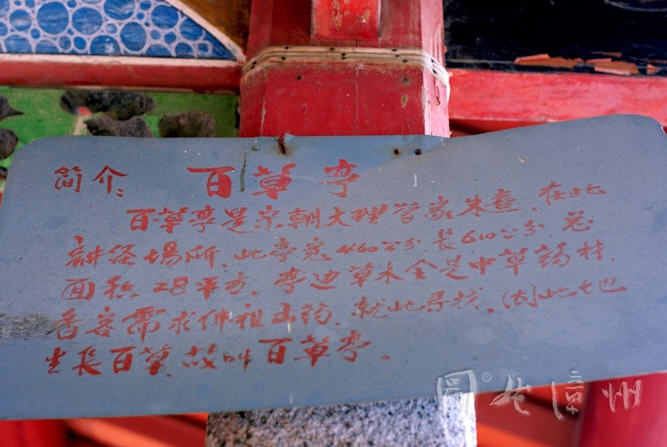 简介: 百草亭
百草亭是宋朝大理学家朱熹、在此
讲经场所、此亭宽460公分长610公分总
面积28平方、亭边草木全是中草药材、
香客需求佛祖 药、就此寻找、因此地
生长百草故叫百草亭。
漳州